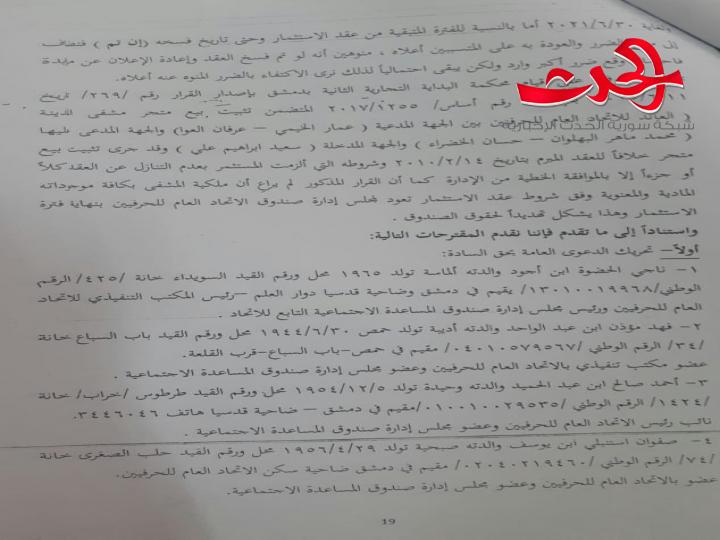 ولغاية ٢٠٢١/٦/٣٠ أما بالنسبة للفترة المتبقية من عقد الاستثمار وحتى تاريخ فسخه ( إن تم ) فتضاف
الضرر والعودة به على المتسببين أعلاه ، منوهين أنه لو تم فسخ العقد وإعادة الإعلان عن مزيدة
وقع ضرر أكبر وارد ولكن يبقى احتمالياً لذلك نرى الاكتفاء بالضرر المنوه عنه أعلاه.
محكمة البداية التجارية الثانية بدمشق بإصدار القرار رقم /٢٦٩/ تاريخ
رقم أساس/ ٢٠١٧/١٢٥٥ المتضمن تثبيت بيع متجر مشفى المدينة
( العائد للاتحاد العام للحرفيين بين الجهة المدعية ( عمار الخيمي – عرفان العوا) والجهة المدعى عليها
( محمد ماهر البهلوان – حسان الخضراء ) والجهة المدخلة ( سعيد ابراهيم علي ) وقد جرى تثبيت بيع
متجر خلافاً للعقد المبرم بتاريخ ٢٠١٠/٢/١٤ وشروطه التي ألزمت المستثمر بعدم التنازل عن العقد كلاً
أو جزءاً إلا بالموافقة الخطية من الإدارة كما أن القرار المذكور لم يراع أن ملكية المشفى بكافة موجوداته
المادية والمعنوية وفق شروط عقد الاستثمار تعود لمجلس إدارة صندوق الاتحاد العام للحرفيين بنهاية فترة
الاستثمار وهذا يشكل تهديداً لحقوق الصندوق .
واستناداً إلى ما تقدم فإننا نقدم المقترحات التالية:
أولاً– تحريك الدعوى العامة بحق السادة:
١– ناجي الحضوة ابن أجود والدته ألماسة تولد ١٩٦٥ محل ورقم القيد السويداء خانة /٤٢٥/ الرقم
الوطني/١٣٠١٠٠١٩٩٦٨/ يقيم في دمشق وضاحية قدسيا دوار العلم –رئيس المكتب التنفيذي للاتحاد
العام للحرفيين ورئيس مجلس إدارة صندوق المساعدة الاجتماعية التابع للاتحاد .
٢– فهد مؤذن ابن عبد الواحد والدته أديبة تولد حمص ١٩٤٤/٦/٣٠ محل ورقم القيد باب السباع خانة
/٣٤/ الرقم الوطني /٠٤٠١٠٥٧٩٥٦٧/ مقيم في حمص–باب السباع–قرب القلعة.
عضو مكتب تنفيذي بالاتحاد العام للحرفيين وعضو مجلس إدارة صندوق المساعدة الاجتماعية .
٣– أحمد صالح ابن عبد الحميد والدته وحيدة تولد ١٩٥٤/١٢/٥ محل ورقم القيد طرطوس /خراب/ خانة
/١٤٢٤/ الرقم الوطني /٠١٠٠١٠٠٢٩٥٣٥/مقيم في دمشق – ضاحية قدسيا هاتف ٣٤٤٦٠٤٦.
نائب رئيس الاتحاد العام للحرفيين وعضو مجلس إدارة صندوق المساعدة الاجتماعية .
٤– صفوان استنبلي ابن يوسف والدته صبحية تولد ١٩٥٦/٤/٢٩ محل ورقم القيد حلب الصغرى خانة
/٧٤/ الرقم الوطني /٠٢٠٤٠٢١٩٤٦٠/ مقيم في دمشق ضاحية سكن الاتحاد العام للحرفيين.
عضو بالاتحاد العام للحرفيين وعضو مجلس إدارة صندوق المساعدة الاجتماعية.
19
الحدث
شبكة سورية الحدث الإخبارية